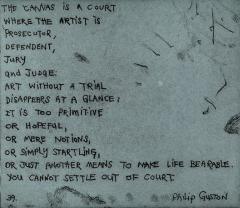 THE CANVAS IS A COURT
WHERE THE ARTIST IS
PROSECUTOR,
DEFENDENT,
JURY
and JUDGE.
ART WITHOUT A TRIAL
DISAPPEARS AT A GLANCE:
IT IS TOO PRIMITIVE
OR HOPEFUL,
OR MERE NOTIONS,
OR SIMPLY STARTLING,
OR JUST ANOTHER MEANS TO MAKE LIFE BEARABLE.
YOU CANNOT SETTLE OUT OF COURT
39. PHILIP GUSTON